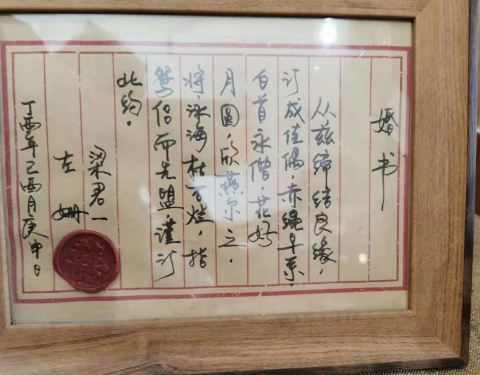 婚书
从兹缔结良缘，
订成佳偶，赤绳早系，
白首永偕，花好
月圆，欣燕尔之，
将泳海枯石烂，指
鸳侣而先盟，谨订
此约。
梁君一
左姗
丁酉年己酉月庚申日